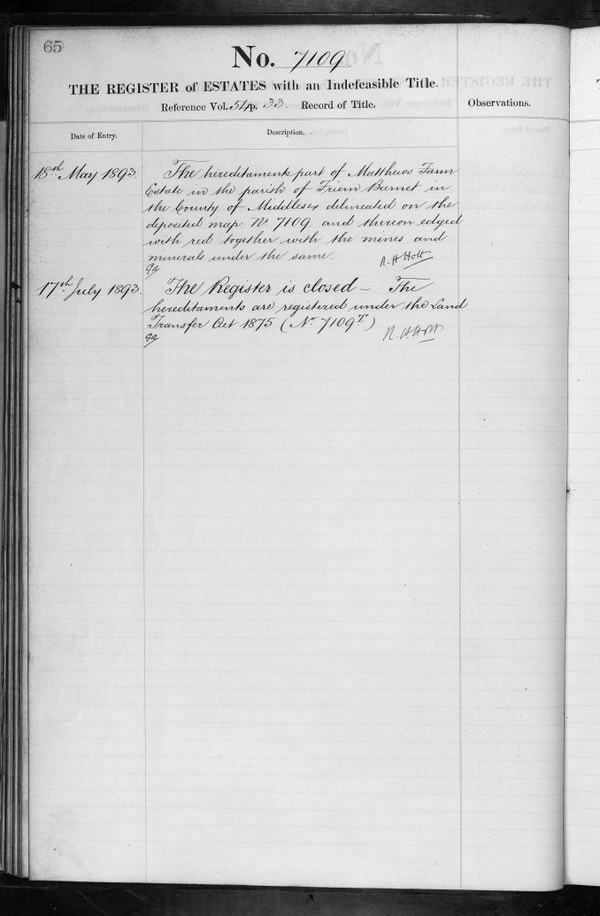 65
No. 7109
THE REGISTER of ESTATES with an Indefeasible Title.
Reference Vol. p. 33. Record of Title.
Observations.
Date of Entry.
Description.
18th May 1893.
The hereditaments part of Matthews Farm
Estate in the parish of Friern Barnet in
the County of Middlesex delineated on the
deposited map No 7109 and thereon edged
with red together with the mines and
minerals under the same.
R. H. Holt
17th July 1893.
The Register is closed — The
hereditaments are registered under the Land
Transfer Act 1875 (No 7109T)
R. H. Holt